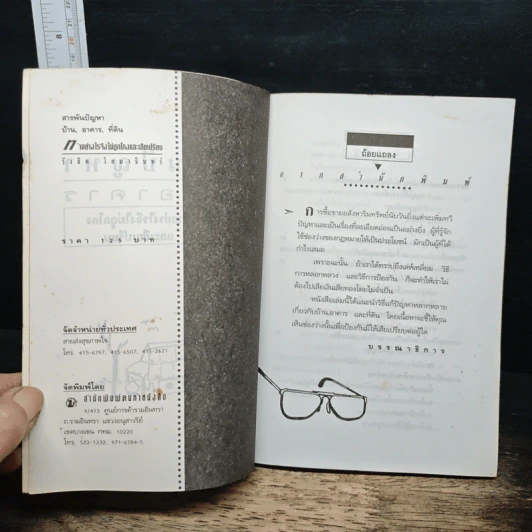 8
สารพันปัญหา
บ้าน, อาคาร, ที่ดิน
ทำอย่างไรจึงไม่ถูกโกงและเสียเปรียบ
ราคา 125 บาท
จัดจำหน่ายทั่วประเทศ
สายส่งสุขภาพใจ
โทร. 415-6797, 415-6507, 415-2621
จัดพิมพ์โดย
สำนักพิมพ์พัฒนาหนังสือ
5/413 ศูนย์การค้ารามอินทรา
ถ.รามอินทรา แขวงอนุสาวรีย์
เขตบางเขน กทม. 10220
โทร. 522-1332, 971-6784-5
ถ้อยแถลง
จากสำนักพิมพ์
การซื้อขายอสังหาริมทรัพย์นับวันยิ่งแต่จะเพิ่มทวี
ปัญหาและเป็นเรื่องที่ละเอียดอ่อนเป็นอย่างยิ่ง ผู้ที่รู้จัก
ใช้ช่องว่างของกฎหมายให้เป็นประโยชน์ มักเป็นผู้ที่ได้
กำไรเสมอ
เพราะฉะนั้น ถ้าเราได้ทราบถึงเล่ห์เหลี่ยม วิธี
การหลอกลวง และวิธีการป้องกัน ก็จะทำให้เราไม่
ต้องไปเสียเงินเสียทองโดยไม่จำเป็น
หนังสือเล่มนี้ได้แนะนำวิธีแก้ปัญหาหลากหลาย
เกี่ยวกับบ้าน,อาคาร และที่ดิน โดยเนื้อหาจะชี้ให้คุณ
เห็นช่องว่างนั้นเพื่อป้องกันมิให้เสียเปรียบต่อผู้ใด
บรรณาธิการ